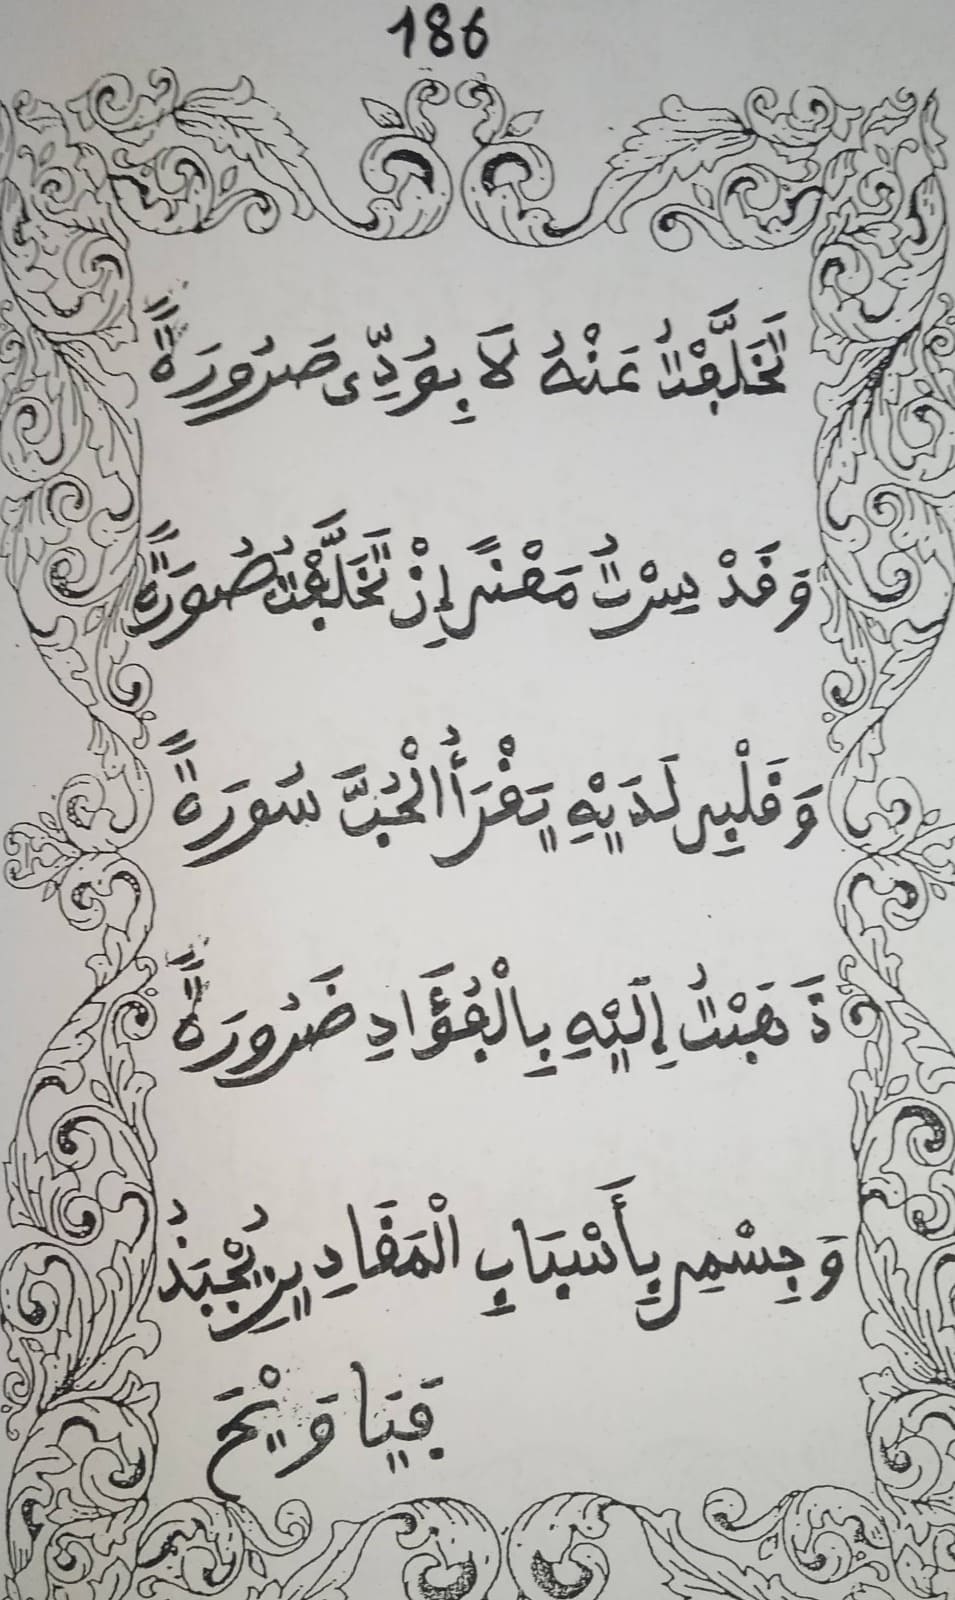 186
تَخَلَّفْتُ عَنْهُ لَا بِوُدِّي صَرُورَةً
وَقَدْ سِرْتُ مَعْنىً إِذْ تَخَلَّفْتُ صُورَةً
وَقَلْبِي لَدَيْهِ يَقْرَأُ الْحُبَّ سُورَةً
ذَهَبْتُ إِلَيْهِ بِالْفُؤَادِ ضَرُورَةً
وَجِسْمِي بِأَسْبَابِ الْمَقَادِيرِ يُجْبَذُ
فَيَا وَيْحَ